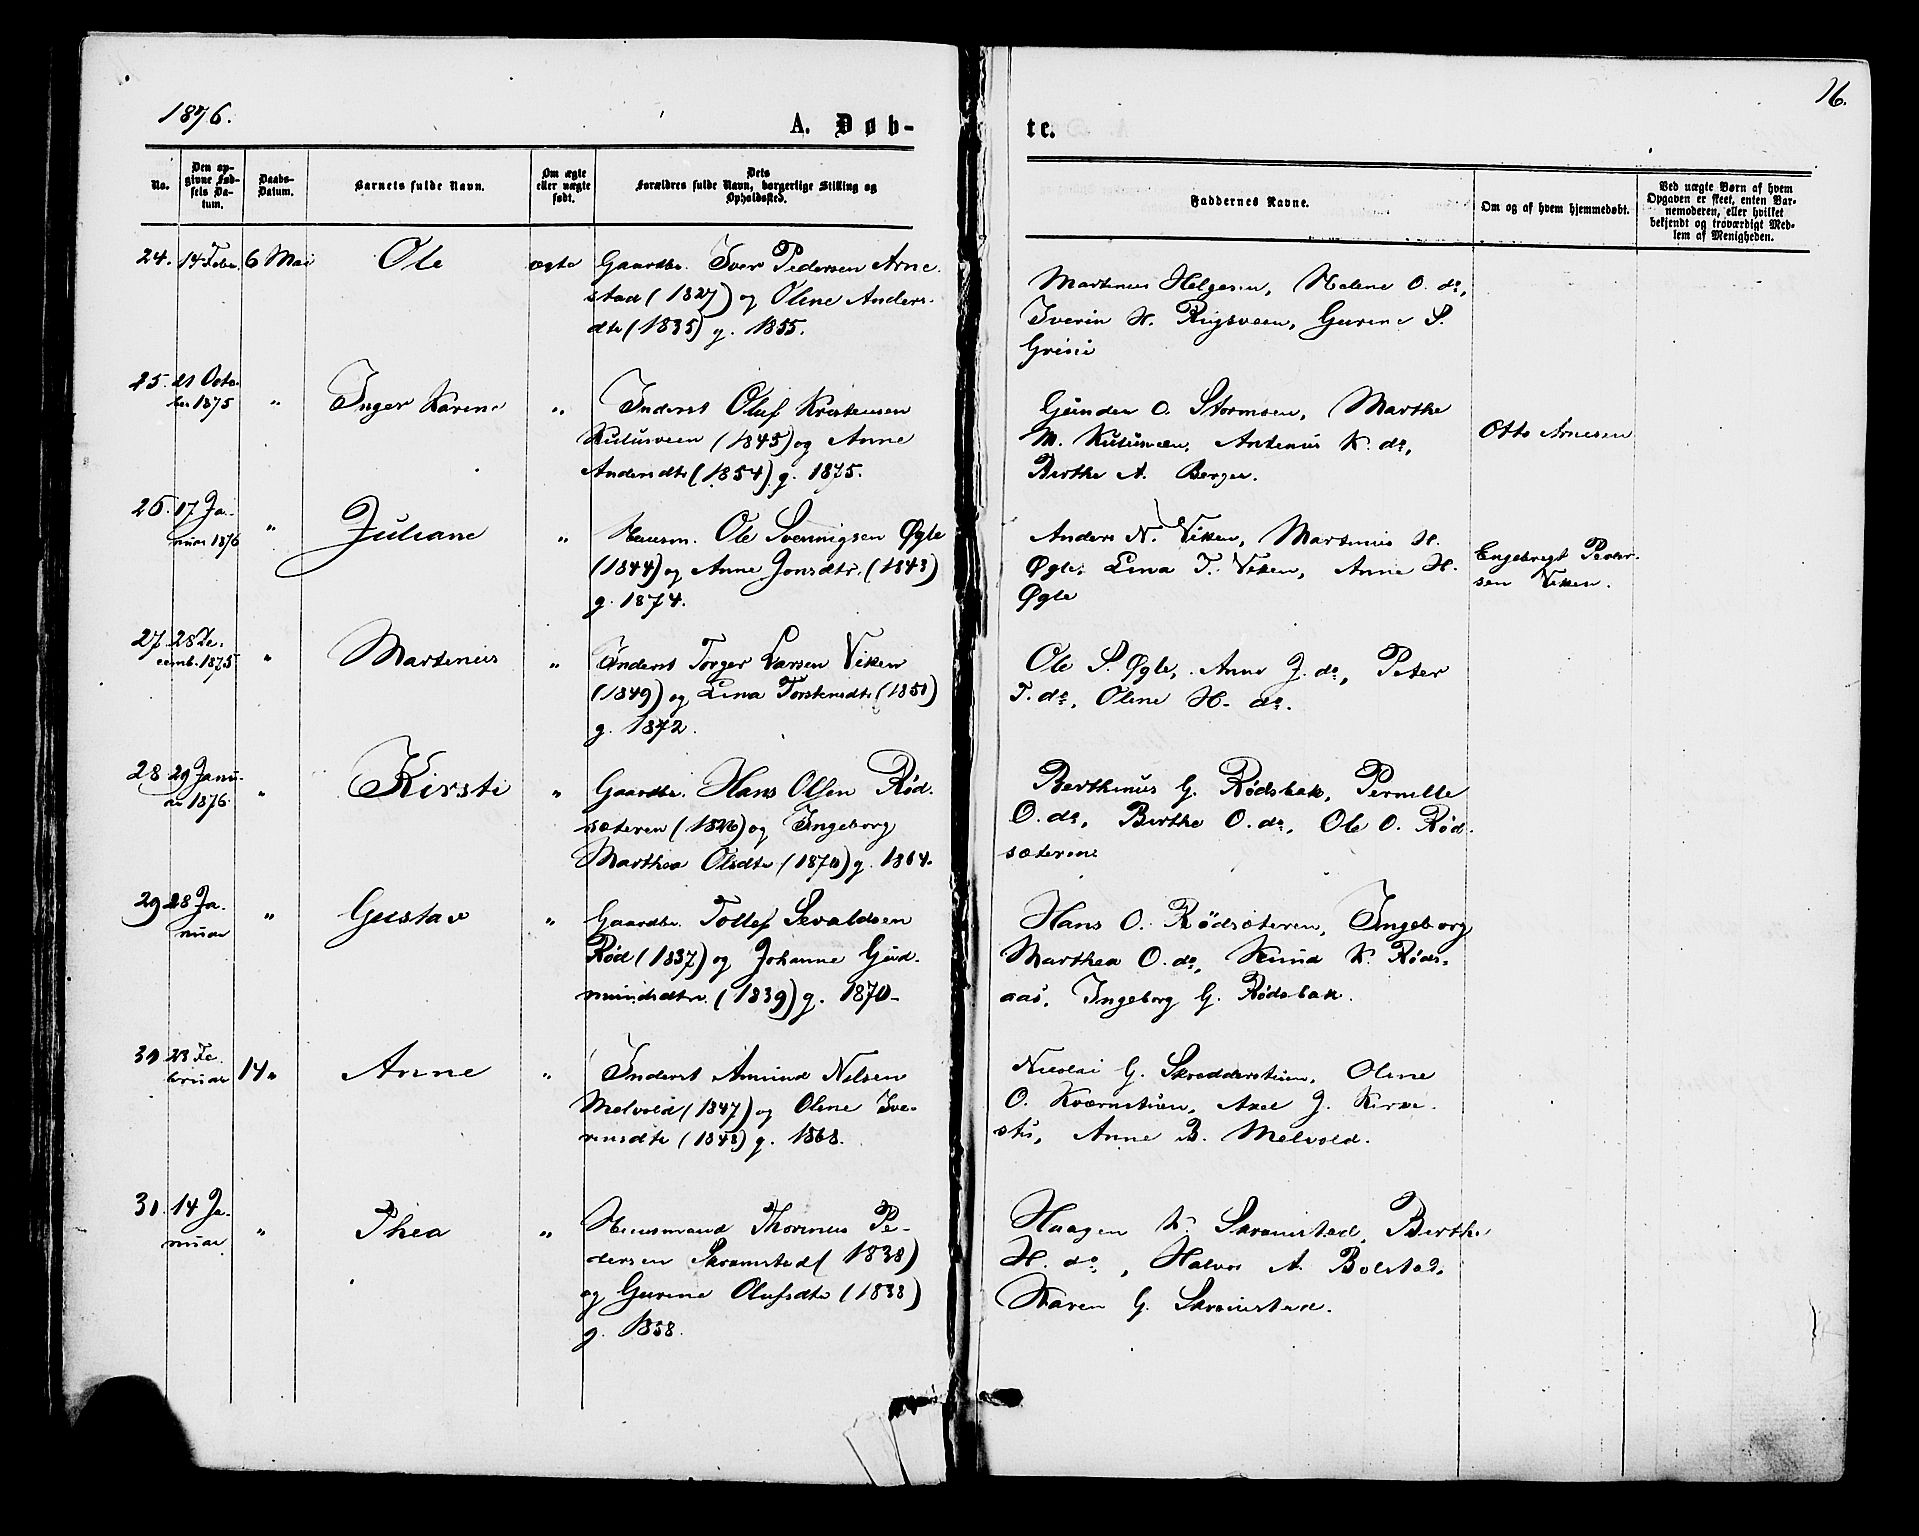 1876.
16.
A. Døb-
te.
No.
Den op-
givne Fød-
sels Da-
tum.
Daabs-
Datum.
Barnets fulde Navn.
Om ægte
eller uægte
født.
Dets
Forældres fulde Navn, borgerlige Stilling og
Opholdssted.
Faddernes Navne.
Om og af hvem hjemmedøbt.
Ved uægte Børn af hvem
Opgaven er skeet, enten Bar-
nemoderen, eller hvilket
bekjendt og troværdigt Med-
lem af Menigheden.
24. 14 Febr. 6 Mai Ole ægte Gaardbr. Iver Pedersen Arne-
stad (1827) og Oline Anders-
dtr (1835) g. 1855.
Martinus Helgesen, Helene O. do,
Iverin H. Rugsveen, Gurine S.
25. 21 Octo-
ber 1875 " Inger Karine " Inderst Oluf Kristensen
Kulusveen (1845) og Anne
Andersdtr (1854) g. 1875.
Gunder O. Stormoen, Marthe
M. Kulusveen, Antenius K. do,
Berthe A. Berger.
Otto Arnesen
26. 17 Ja-
nuar 1876 " Juliane " Husm. Ole Svennigsen Øgle
(1844) og Anne Jonsdtr. (1843)
g. 1874.
Anders N. Viken, Martinius H.
Øgle, Lina T. Viken, Anne H.
Øgle
Engebregt Peder-
sen Viken.
27. 28 De-
cemb. 1875 " Martinius " Inderst Torger Larsen Viken
(1849) og Lina Torstensdtr (1851)
g. 1872.
Ole S. Øgle, Anne J. do, Peter
T. do, Oline H. do.
28 29 Janu-
ar 1876. " Kirsti " Gaardbr. Hans Olsen Rød-
sæteren (1826) og Ingeborg
Marthea Olsdtr (1870) g. 1864.
Berthinus G. Rødsbak, Pernille
O. do, Berthe O. do, Ole O. Rød-
sæterene
29 28 Ja-
nuar " Gustav " Gaardbr. Tollef Sevaldsen
Rød (1837) og Johanne Gud-
mundsdtr. (1839) g. 1870-
Hans O. Rødsæteren, Ingeborg
Marthea O. do, Knud K. Røds-
aas, Ingeborg G. Rødsbak.
30 23 Fe-
bruar 14 " Anne " Inderst Amund Nilsen
Melvold (1847) og Oline Ive-
rensdtr (1848) g. 1868.
Nicolai G. Skredderstuen, Oline
O. Kværnstuen, Axel J. Kirke-
Anne B. Melvold.
31. 14 Ja-
nuar " Thea " Huusmand Thorinus Pe-
dersen Skramstad (1838)
og Gurine Olufsdtr (1838)
g. 1858.
Haagen K. Skramstad, Berthe
H. do, Halvor A. Bolstad,
Karen G. Skramstad.